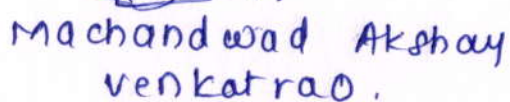 Machandwad Akshay
Venkatrao.